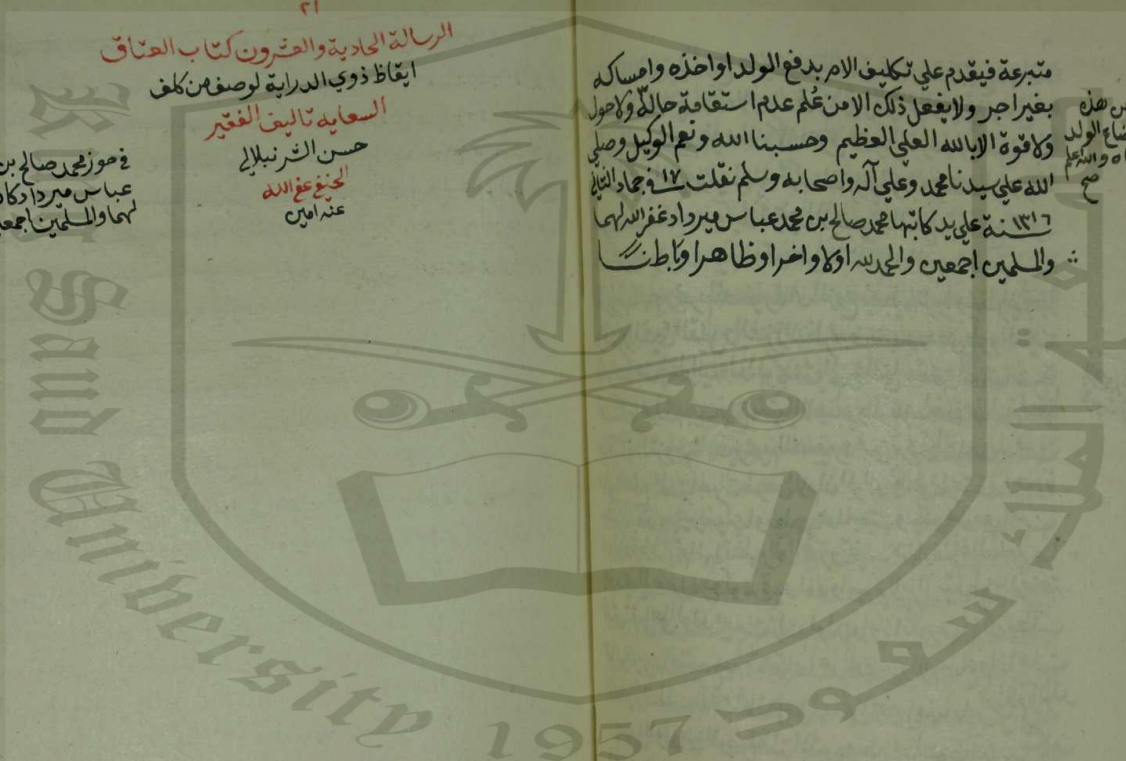 متبرعة فيقدم علي تكليف الام بدفع الولد او اخذه وامساكه
بغير اجر ولا يفعل ذلك الا من عُلم عدم استقامة حاله ولا حول
ولا قوة الا بالله العلي العظيم وحسبنا الله ونعم الوكيل وصلي
الله علي سيدنا محمد وعلي آله واصحابه وسلم نقلت ١٧ في جماد الثاني
سنة ١٣١٦ علي يد كاتبها محمد صالح بن محمد عباس ميرداد غفر الله لهما
والمسلمين اجمعين والحمد لله اولا واخرا وظاهرا وباطنا
هذه
الولد
صح
٢١
الرسالة الحادية والعشرون كتاب العتاق
ايقاظ ذوي الدراية لوصف من كلف
السعاية تاليف الفقير
حسن الشرنبلالي
الحنفي عفي الله
عنه امين
في حوز محمد صالح بن
عباس ميرداد
لهما والمسلمين
King Saud University
1957
جامعة الملك سعود